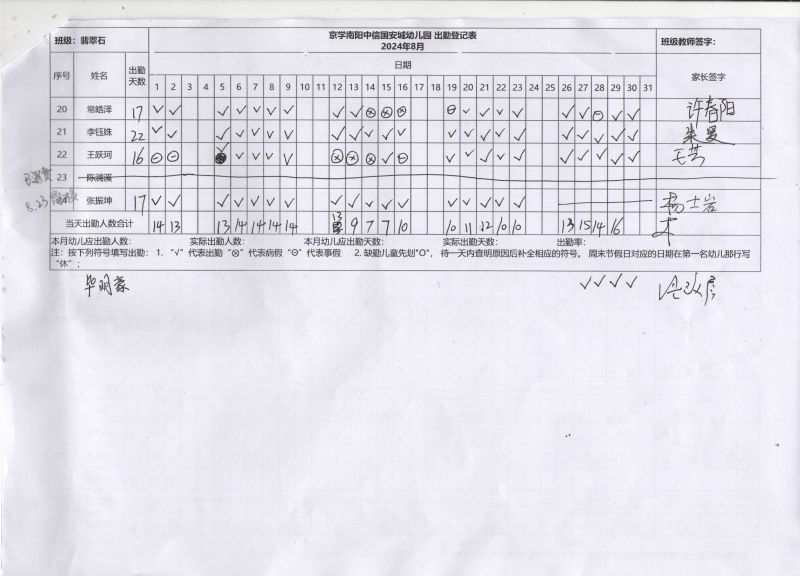 京学南阳中信国安城幼儿园 出勤登记表
班级：翡翠石 2024年8月 班级教师签字：
序号 姓名 出勤天数 日期 家长签字
1 2 3 4 5 6 7 8 9 10 11 12 13 14 15 16 17 18 19 20 21 22 23 24 25 26 27 28 29 30 31
20 常皓泽 17 √ √ √ √ √ √ √ √ √ ⊗ ⊗ ⊗ ⊖ √ √ √ √ √ √ ⊖ √ √ 许春阳
21 李钰姝 22 √ √ √ √ √ √ √ √ √ √ √ √ √ √ √ √ √ √ √ √ √ √
22 王跃珂 16 ⊖ ⊖ √ √ √ √ ⊗ ⊗ ⊗ √ ⊖ √ √ √ √ √ √ √ √ √ √
23 陈澜溪
8.23
24 张振坤 17 √ √ √ √ √ √ √ √ √ √ √ √ √ √ √ √ √ 杨士岩
当天出勤人数合计 14 13 13 14 14 14 14 13 9 7 7 10 10 11 12 10 10 13 15 14 16
本月幼儿应出勤人数： 实际出勤人数： 本月幼儿应出勤天数： 实际出勤天数： 出勤率：
注：按下列符号填写出勤： 1. “√”代表出勤 “⊗”代表病假 “⊖”代表事假 2. 缺勤儿童先划"O"， 待一天内查明原因后补全相应的符号。 周末节假日对应的日期在第一名幼儿那行写
“休”；
毕明豪 √ √ √ √